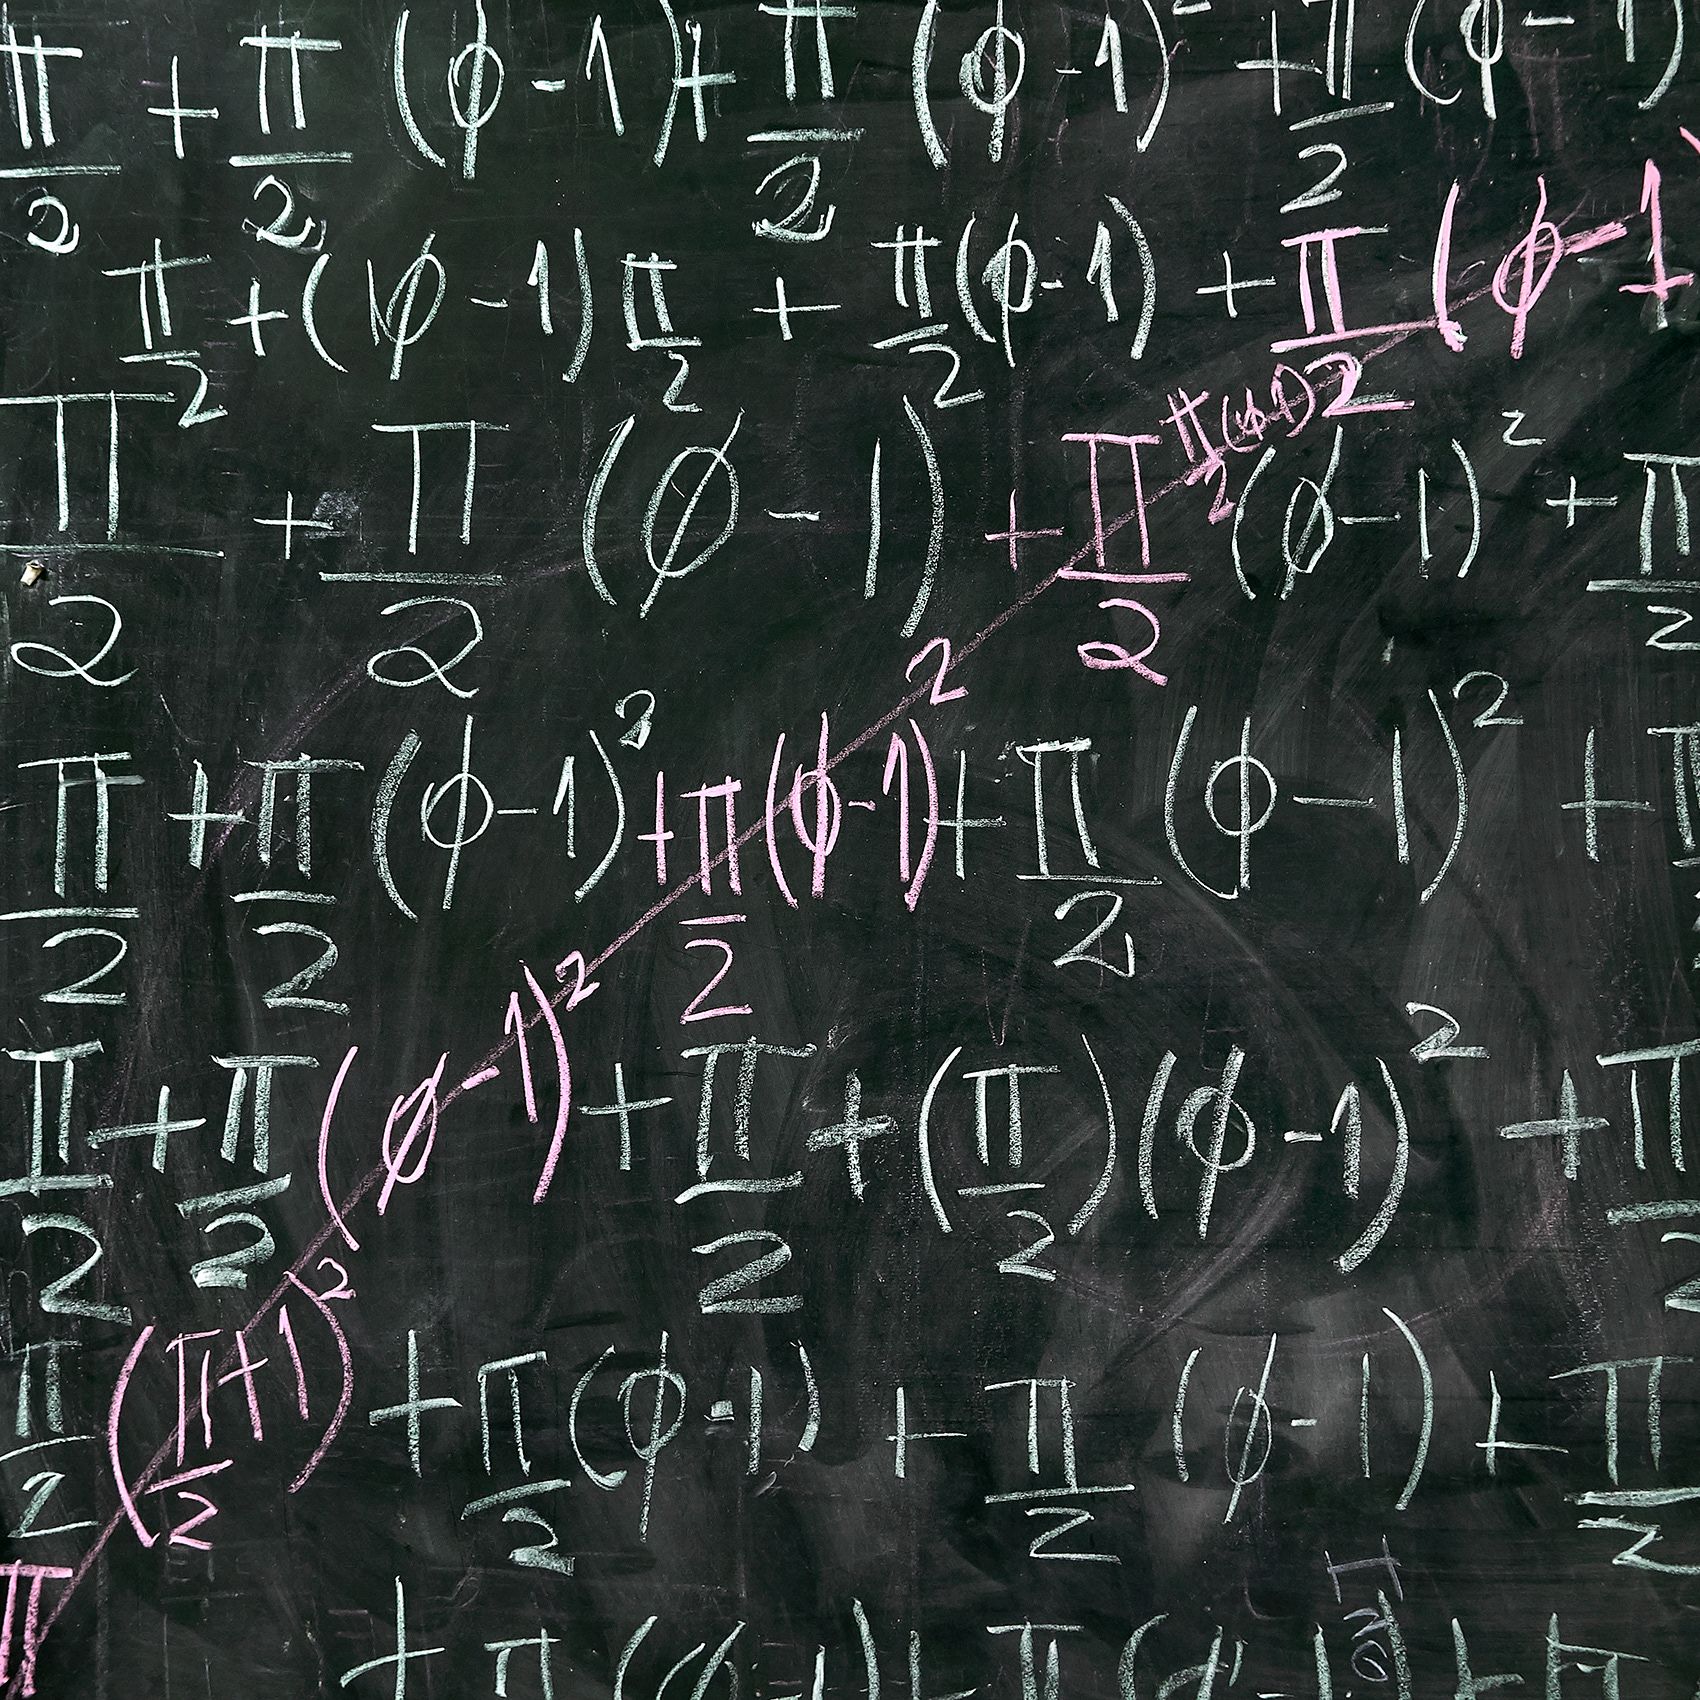 π/2 + π/2 (ϕ-1) + π/2 (ϕ-1)² + π/2 (ϕ-1)
π/2 + (ϕ-1) π/2 + π/2 (ϕ-1) + π/2 (ϕ-1
π/2 + π/2 (ϕ - 1) + π/2 π/2 (ϕ-1) (ϕ-1)² + π/2
π/2 + π/2 (ϕ-1)³ + π/2 (ϕ-1)² + π/2 (ϕ-1)² + π
π/2 + π/2 (ϕ-1)² + π/2 + (π/2)(ϕ-1)² + π/2
π/2 (π+1/2)² + π/2 (ϕ-1) + π/2 (ϕ-1) + π/2
π + π (ϕ-1) + π (ϕ-1) + π